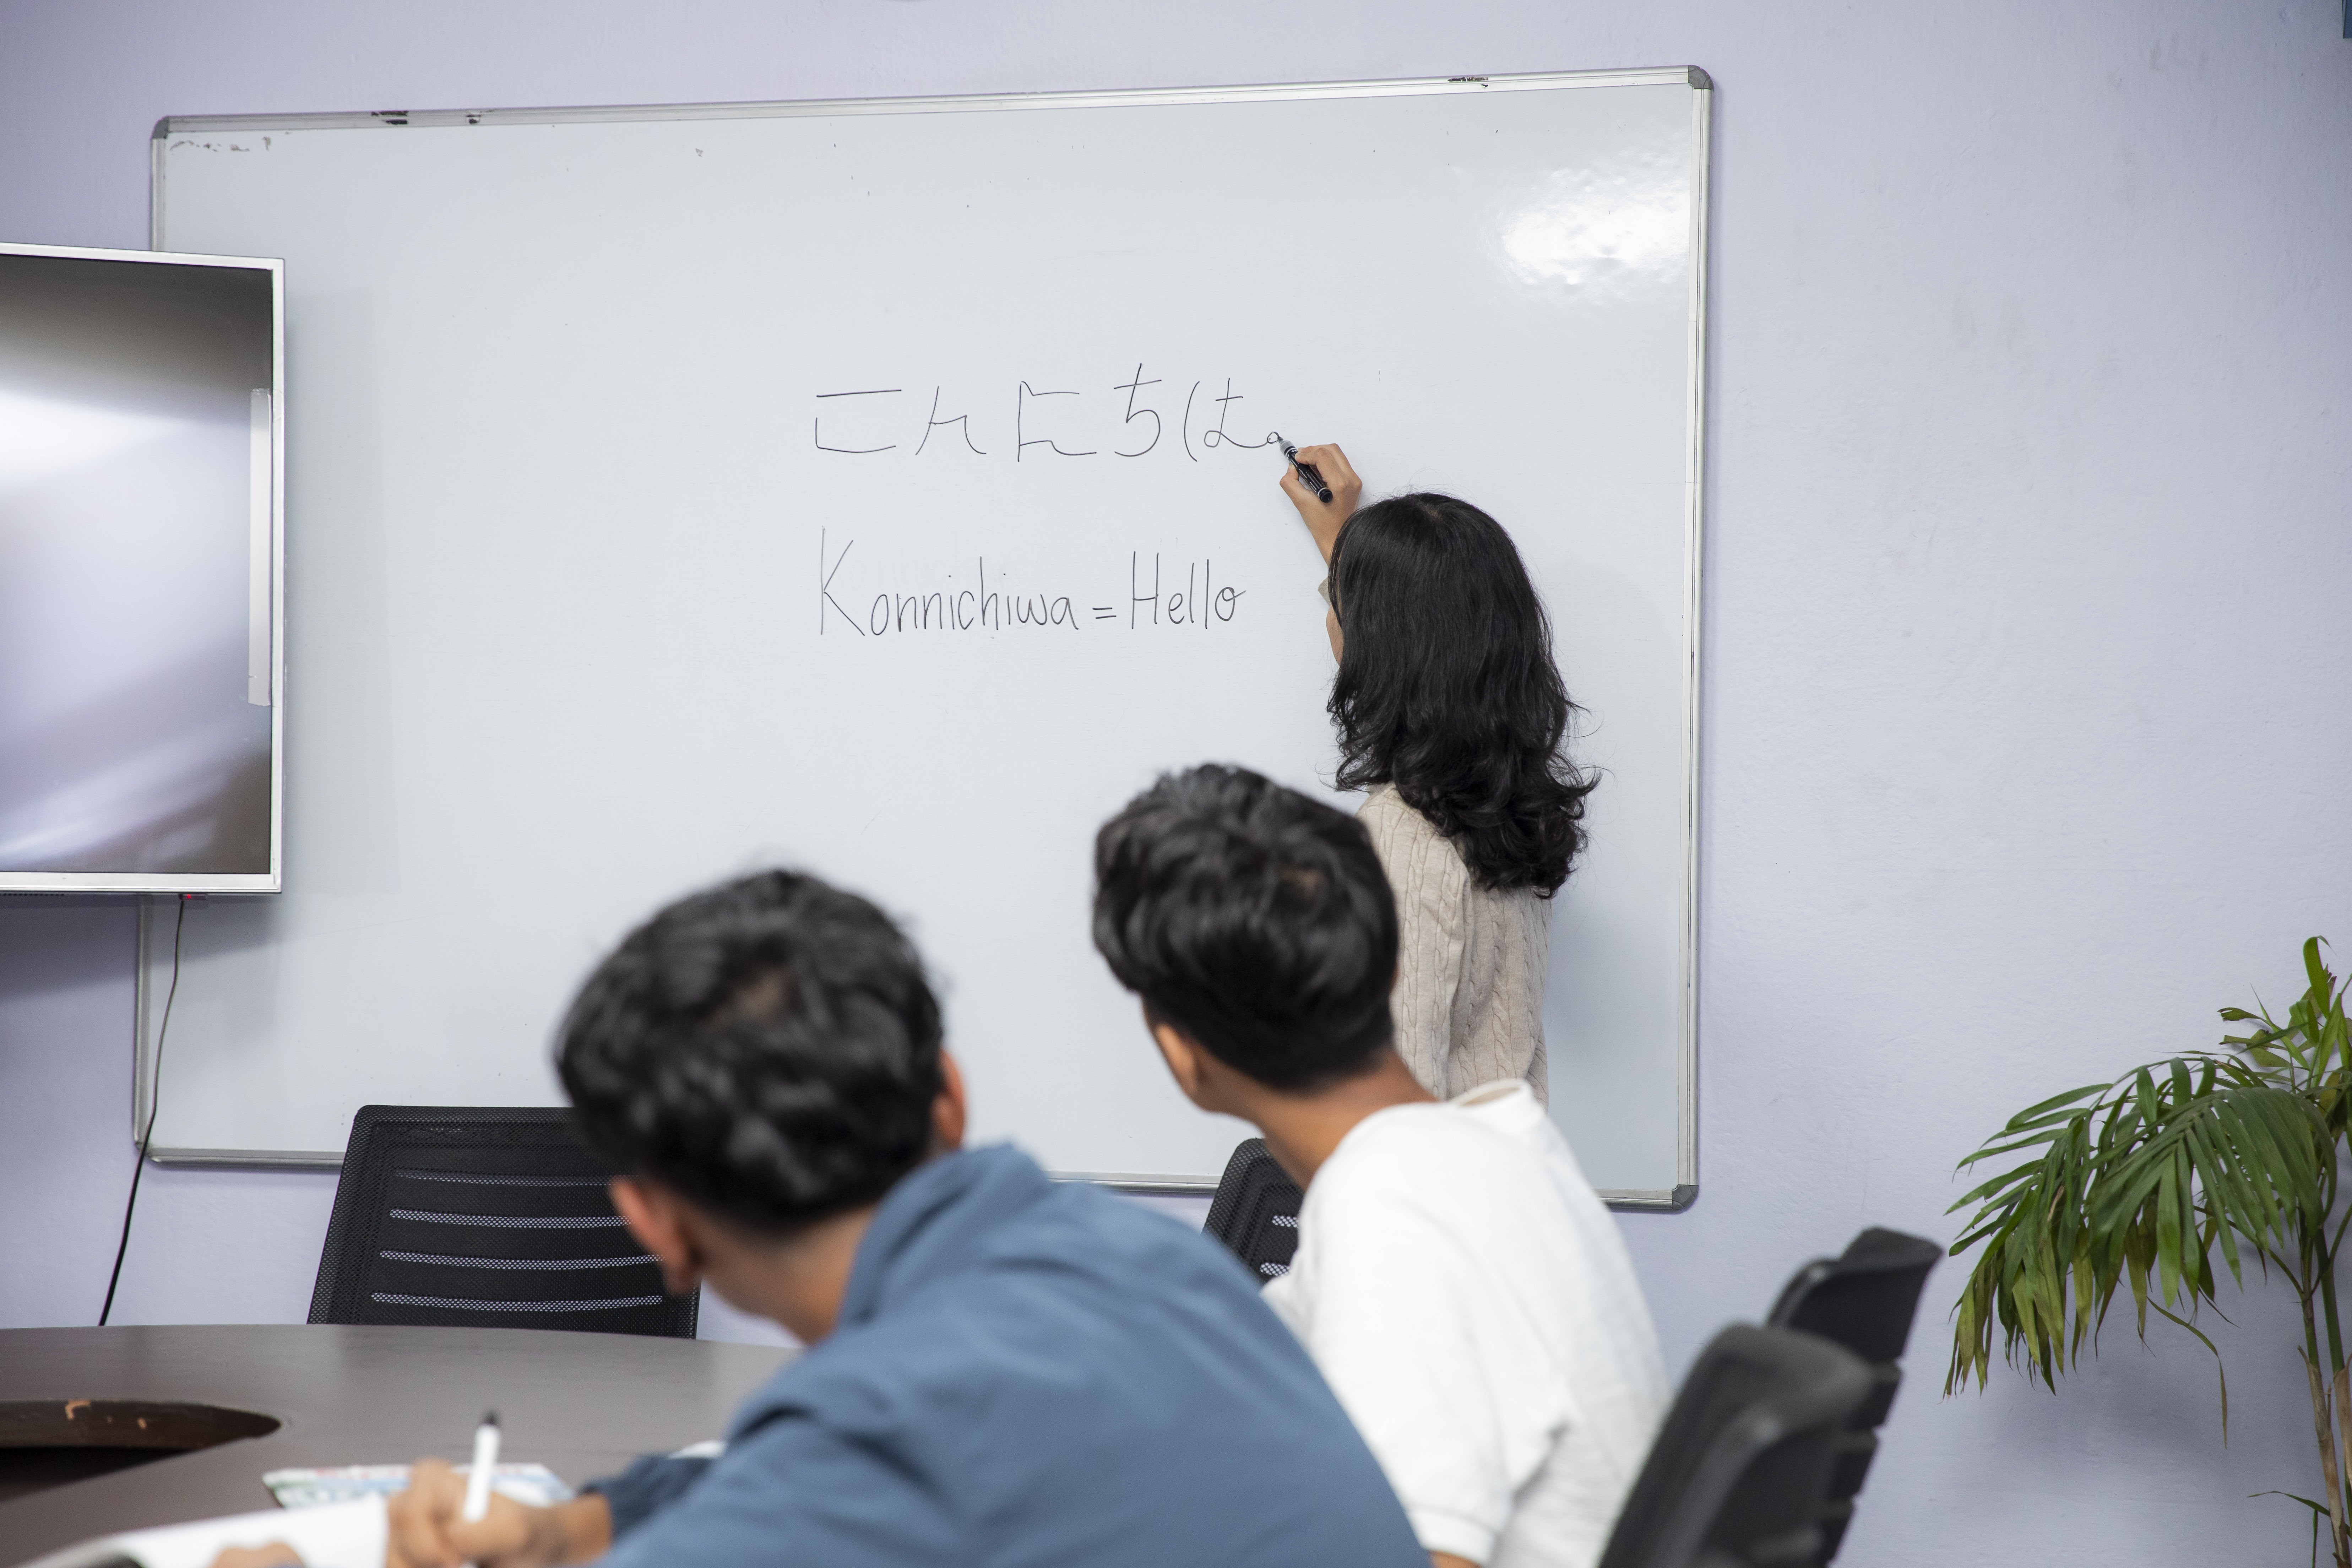 こんにちは。
Konnichiwa = Hello